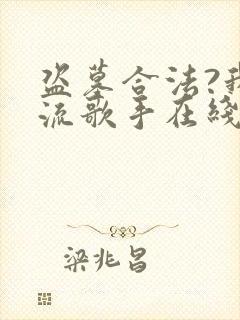 盗墓合法?我
流歌手在线
梁兆昌